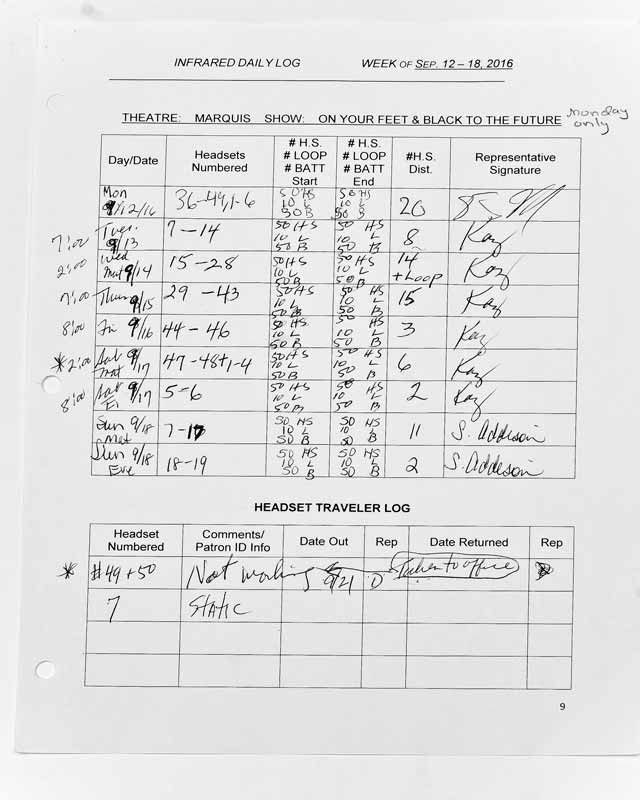 INFRARED DAILY LOG WEEK OF SEP. 12 – 18, 2016
THEATRE: MARQUIS SHOW: ON YOUR FEET & BLACK TO THE FUTURE monday only
Day/Date Headsets Numbered # H.S. # LOOP # BATT Start # H.S. # LOOP # BATT End #H.S. Dist. Representative Signature
Mon 9/12/16 36-49,1-6 50 HS 10 L 50 B 50 HS 10 L 50 B 20
7:00 Tues. 9/13 7-14 50 HS 10 L 50 B 50 HS 10 L 50 B 8 Kay
2:00 Wed Mat 9/14 15-28 50 HS 10 L 50 B 50 HS 10 L 50 B 14 + Loop Kay
7:00 Thurs 9/15 29-43 50 HS 10 L 50 B 50 HS 10 L 50 B 15 Kay
8:00 Fri 9/16 44-46 50 HS 10 L 50 B 50 HS 10 L 50 B 3 Kay
*2:00 Sat Mat 9/17 47-48+1-4 50 HS 10 L 50 B 50 HS 10 L 50 B 6 Kay
8:00 Sat 9/17 5-6 50 HS 10 L 50 B 50 HS 10 L 50 B 2 Kay
Sun 9/18 Mat 7-17 50 HS 10 L 50 B 50 HS 10 L 50 B 11 S. Addison
Sun 9/18 Eve 18-19 50 HS 10 L 50 B 50 HS 10 L 50 B 2 S. Addison
HEADSET TRAVELER LOG
Headset Numbered Comments/ Patron ID Info Date Out Rep Date Returned Rep
* #49+50 Not working 9/21 D Taken to office
7 STATIC
9